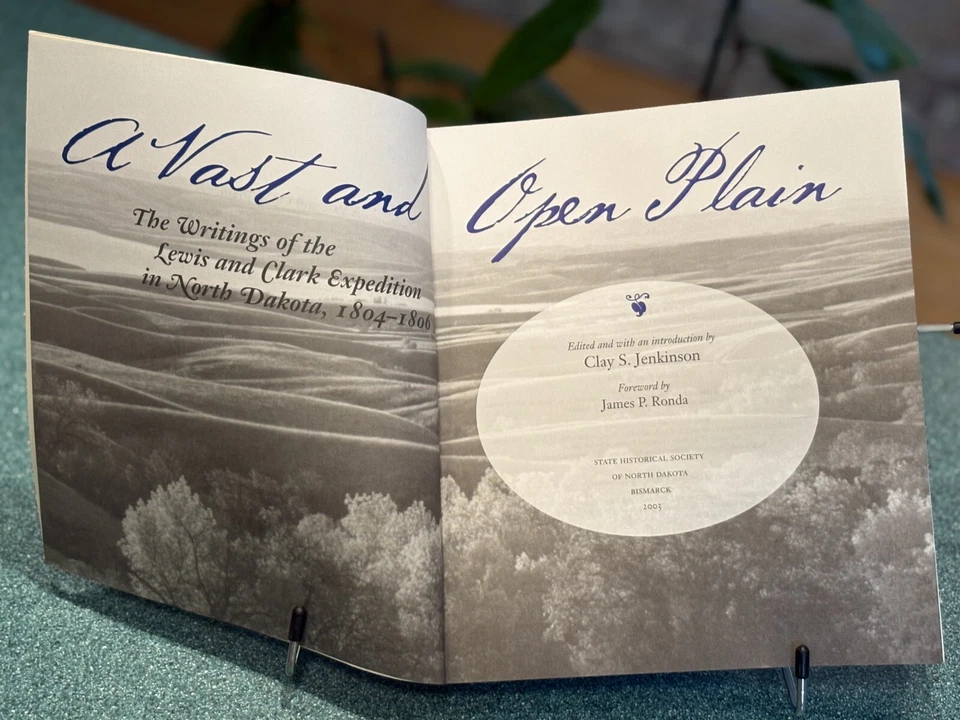 A Vast and Open Plain
The Writings of the
Lewis and Clark Expedition
in North Dakota, 1804–1806
Edited and with an introduction by
Clay S. Jenkinson
Foreword by
James P. Ronda
STATE HISTORICAL SOCIETY
OF NORTH DAKOTA
BISMARCK
2003